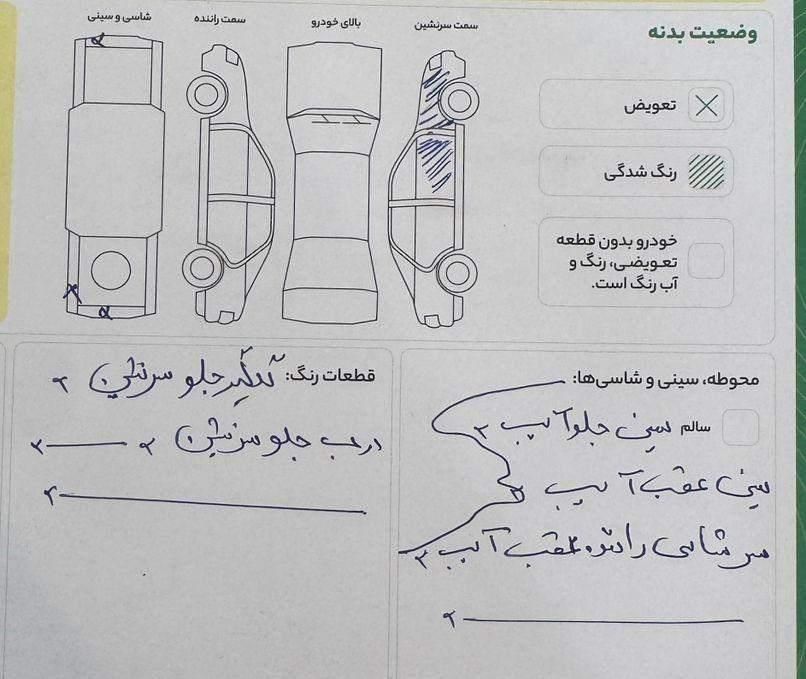 وضعیت بدنه
سمت سرنشین
بالای خودرو
سمت راننده
شاسی و سینی
تعویض
رنگ شدگی
خودرو بدون قطعه
تعویضی، رنگ و
آب رنگ است.
محوطه، سینی و شاسی‌ها:
سالم
سینی جلو آسیب
سینی عقب آسیب
سر شاسی راننده عقب آسیب
قطعات رنگ: گلگیر جلو سرنشین
درب جلو سرنشین